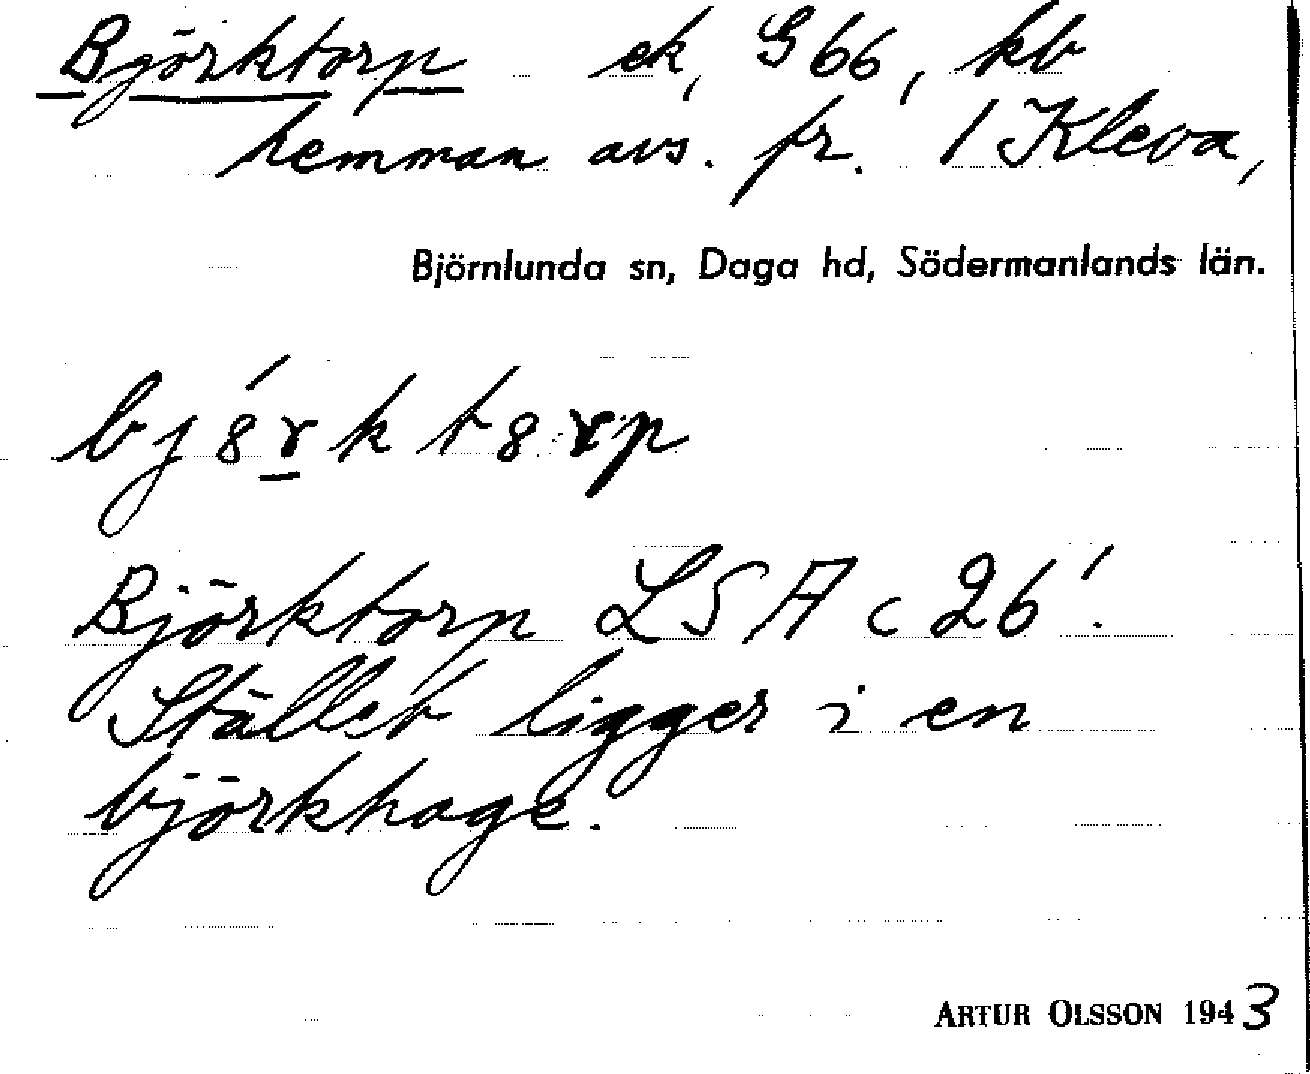 Björktorp ek, G66, kb
hemman avs. fr. 1 Kleva,
Björnlunda sn, Daga hd, Södermanlands län.
bj8́r̲kt8rp
Björktorp LSA c 26!
Stället ligger i en
björkhage.
ARTUR OLSSON 1943